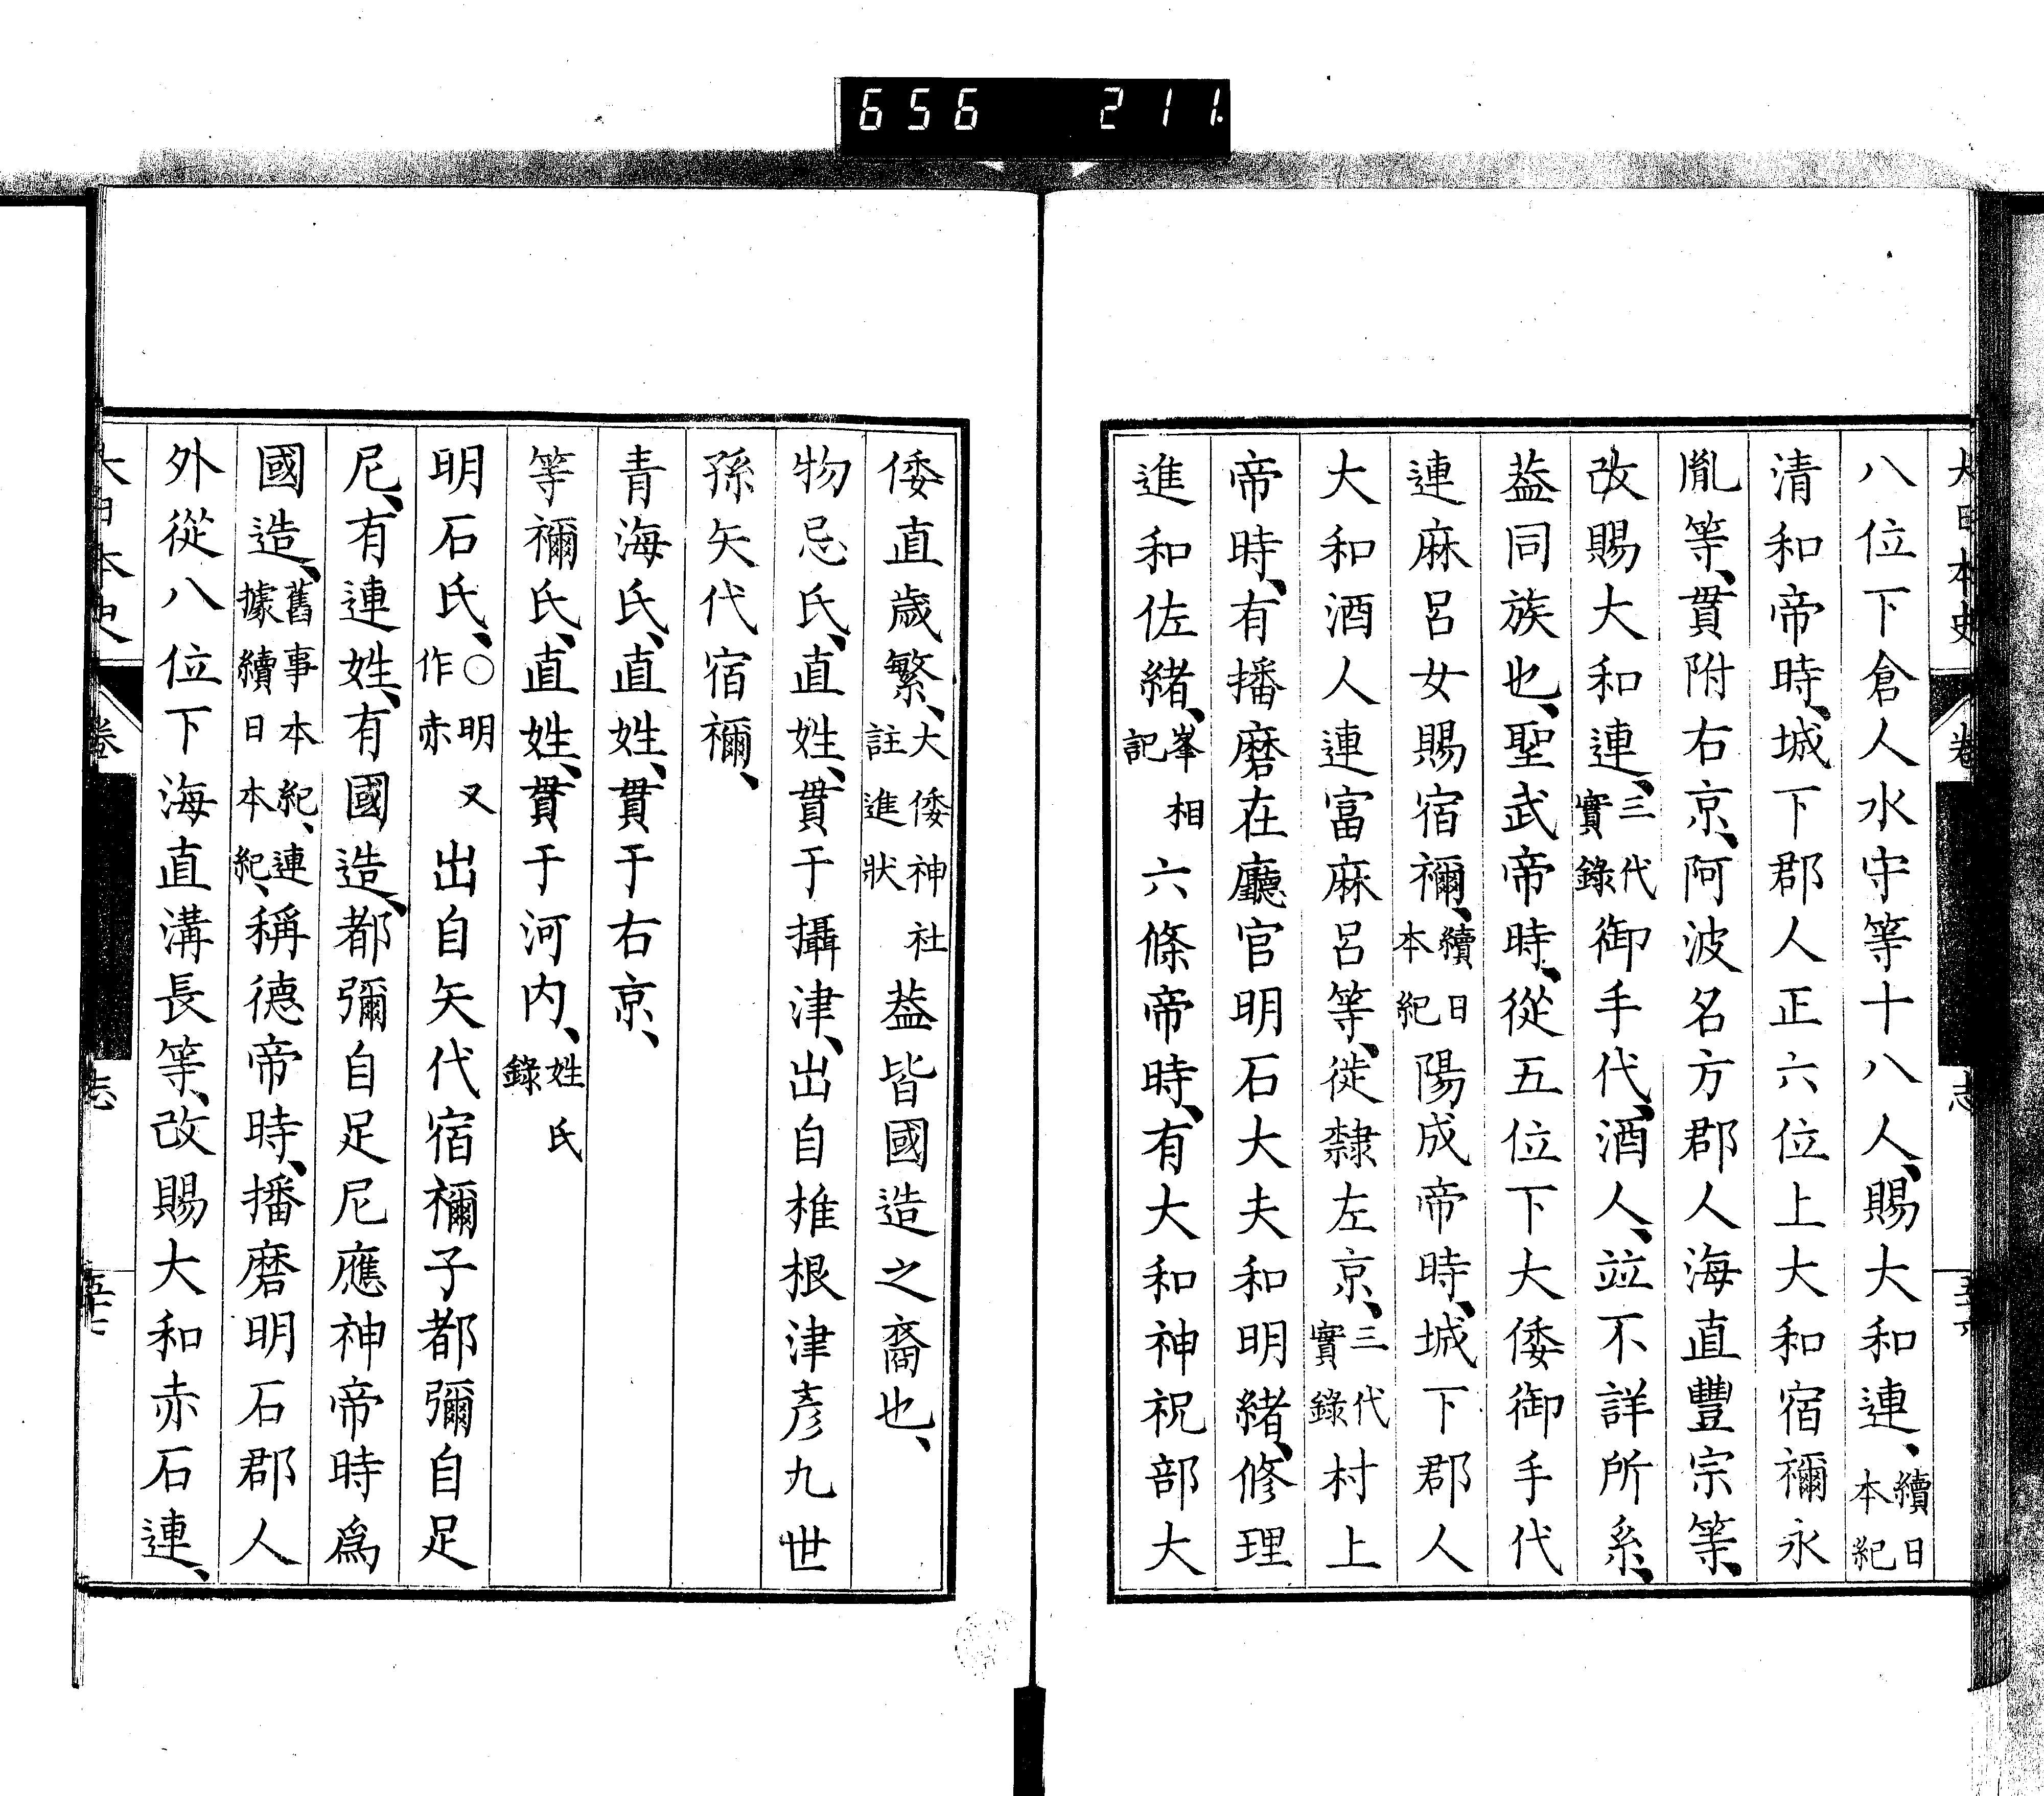 656 211.
大日本史 卷 志 五十六
八位下倉人水守等十八人、賜大和連、續日本紀
清和帝時、城下郡人正六位上大和宿禰永
胤等、貫附右京、阿波名方郡人海直豐宗等、
改賜大和連、三代實錄御手代、酒人、竝不詳所系、
葢同族也、聖武帝時、從五位下大倭御手代
連麻呂女賜宿禰、續日本紀陽成帝時、城下郡人
大和酒人連富麻呂等、徙隸左京、三代實錄村上
帝時、有播磨在廳官明石大夫和明緒、修理
進和佐緒、峯相記六條帝時、有大和神祝部大
倭直歲繁、大倭神社註進狀葢皆國造之裔也、
物忌氏、直姓、貫于攝津、出自椎根津彥九世
孫矢代宿禰、
青海氏、直姓、貫于右京、
等禰氏、直姓、貫于河内、姓氏錄
明石氏、○明又作赤出自矢代宿禰子都彌自足
尼、有連姓、有國造、都彌自足尼應神帝時爲
國造、舊事本紀、連據續日本紀、稱德帝時、播磨明石郡人
外從八位下海直溝長等、改賜大和赤石連、
大日本史 卷 志 五十七